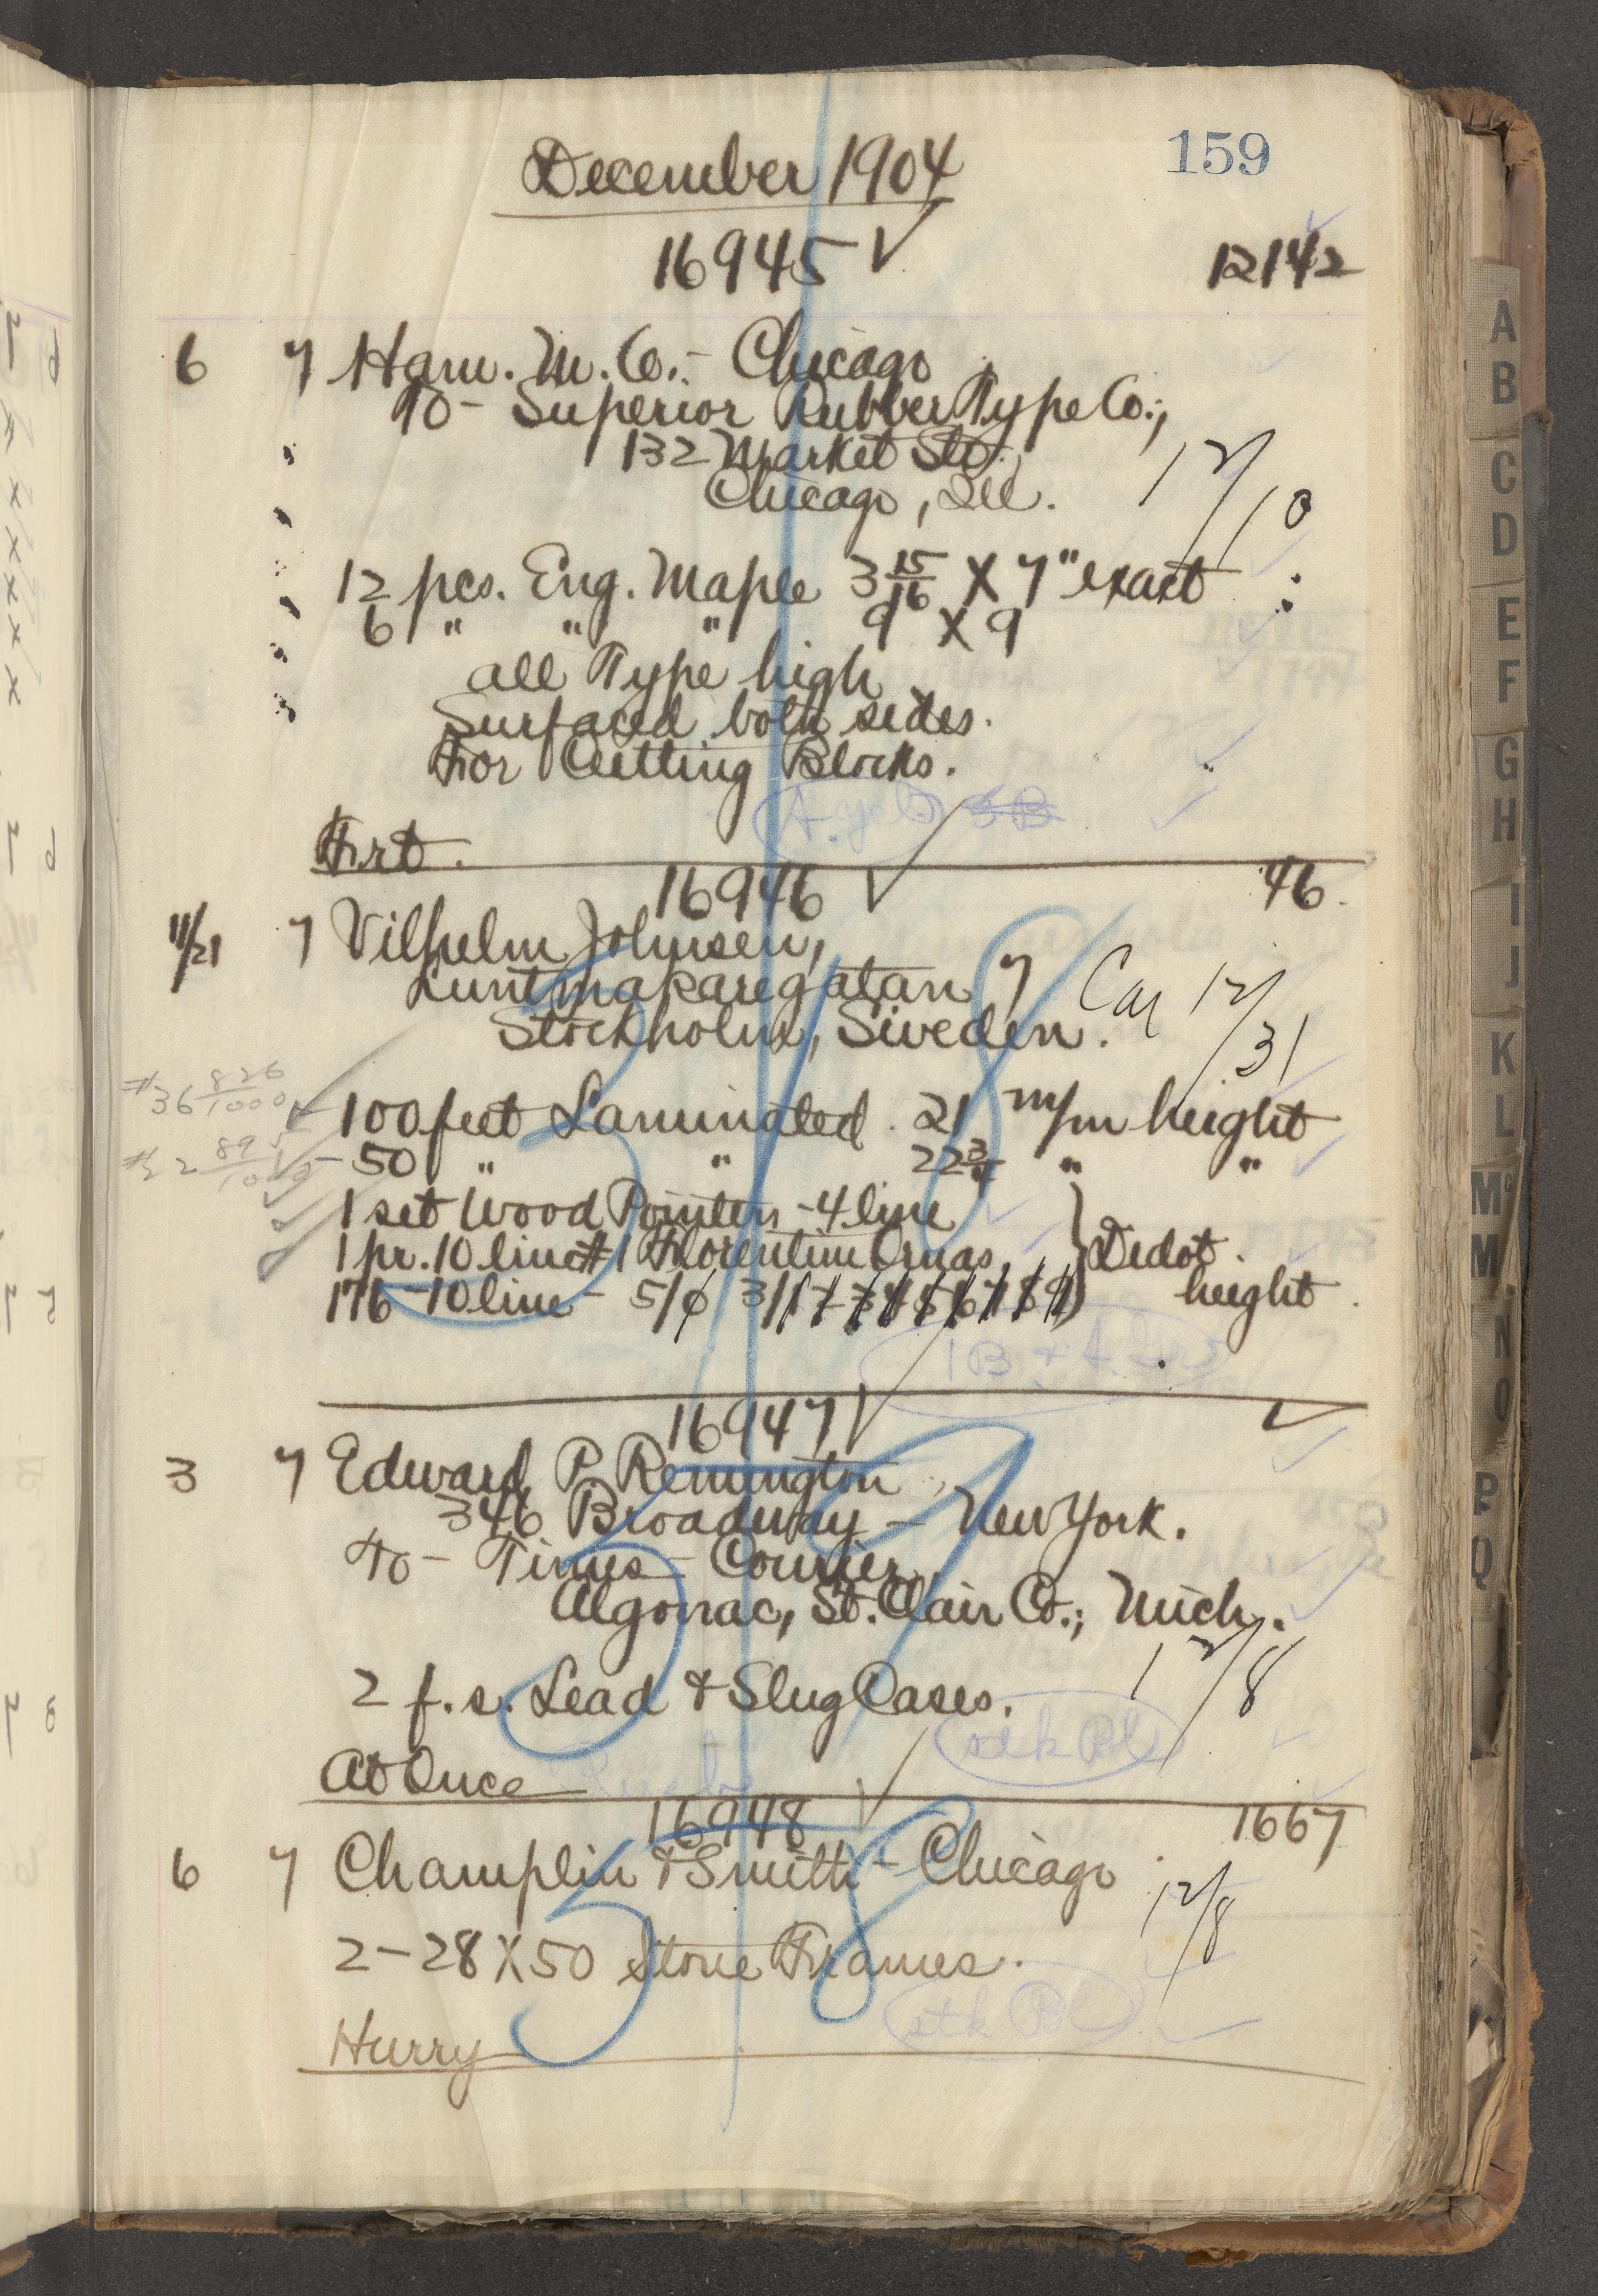 159
December 1904
16945 ✓ 12142
6 7 Ham. M. Co. - Chicago
To - Superior Rubber Type Co.;
132 Market St.;
Chicago, Ill. 12/10
12 pcs. Eng. Maple 3 15/16 X 7" exact
6 " " " 9 X 9
all Type high
Surfaced both sides.
For Cutting Blocks.
Frt.
16946 ✓ 46.
11/21 7 Vilhelm Johnsen,
Luntmakaregatan 7
Stockholm, Sweden. Car 12/31
#36 826/1000
100 feet Laminated 21 m/m height
50 " " 22 3/4 " "
1 set Wood Pointers - 4 line
1 pr. 10 line #1 Florentine Ornas. } Didot
176 - 10 line - 5/6 3/1 height.
16947 ✓
3 7 Edward P. Remington,
346 Broadway - New York.
To - Times - Courier,
Algonac, St. Clair Co.; Mich.
2 f.s. Lead & Slug Cases. 12/8
stk Bl
At Once
16948 ✓ 1667
6 7 Champlin & Smith - Chicago. 12/8
2 - 28 X 50 Stone Frames.
stk Bl
Hurry
A
B
C
D
E
F
G
H
I
J
K
L
Mc
M
N
O
P
Q